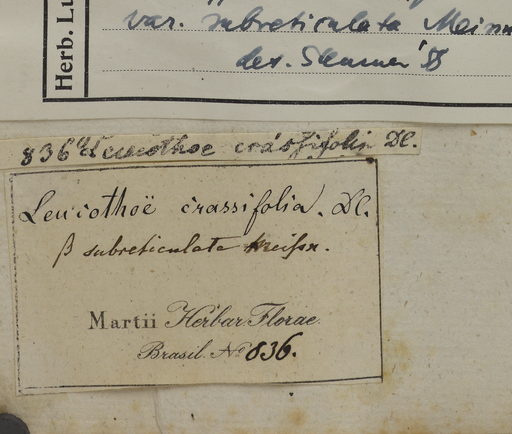 Herb. Lu
var. subreticulata Meissn
det. Sleumer
836 Leucothoe crassifolia DC.
Leucothoë crassifolia. DC.
β subreticulata Meißn.
Martii Herbar. Florae
Brasil. No 836.